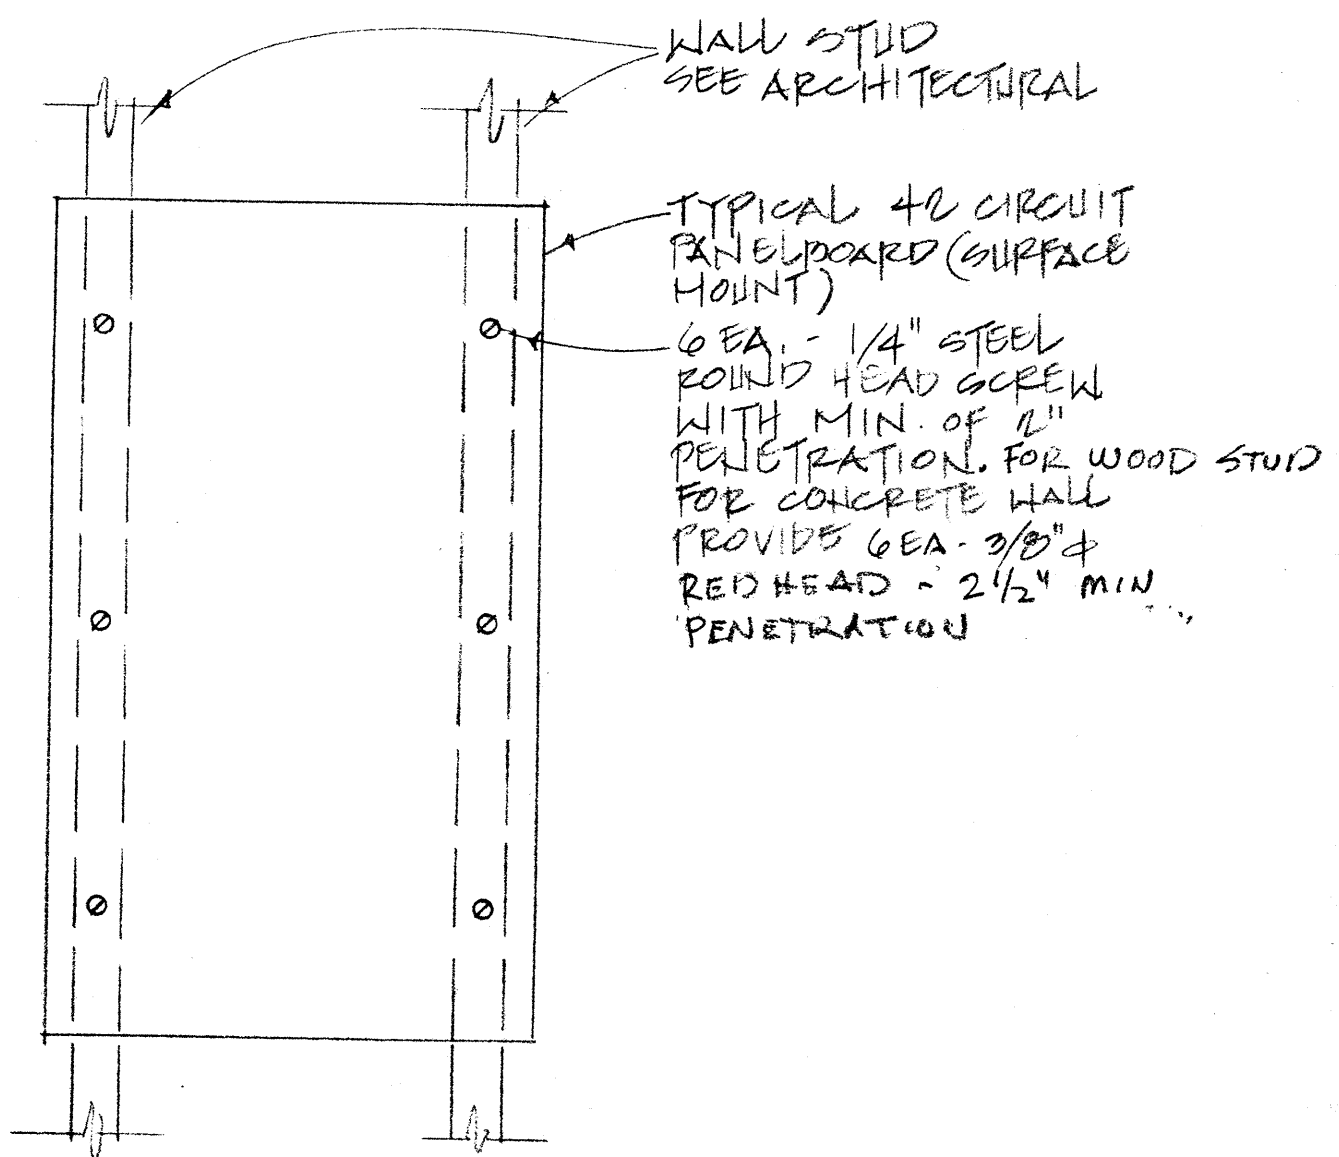 WALL STUD
SEE ARCHITECTURAL
TYPICAL 42 CIRCUIT
PANELBOARD (SURFACE
MOUNT)
6 EA. - 1/4" STEEL
ROUND HEAD SCREW
WITH MIN. OF 2"
PENETRATION. FOR WOOD STUD
FOR CONCRETE WALL
PROVIDE 6 EA - 3/8" φ
RED HEAD - 2 1/2" MIN
PENETRATION